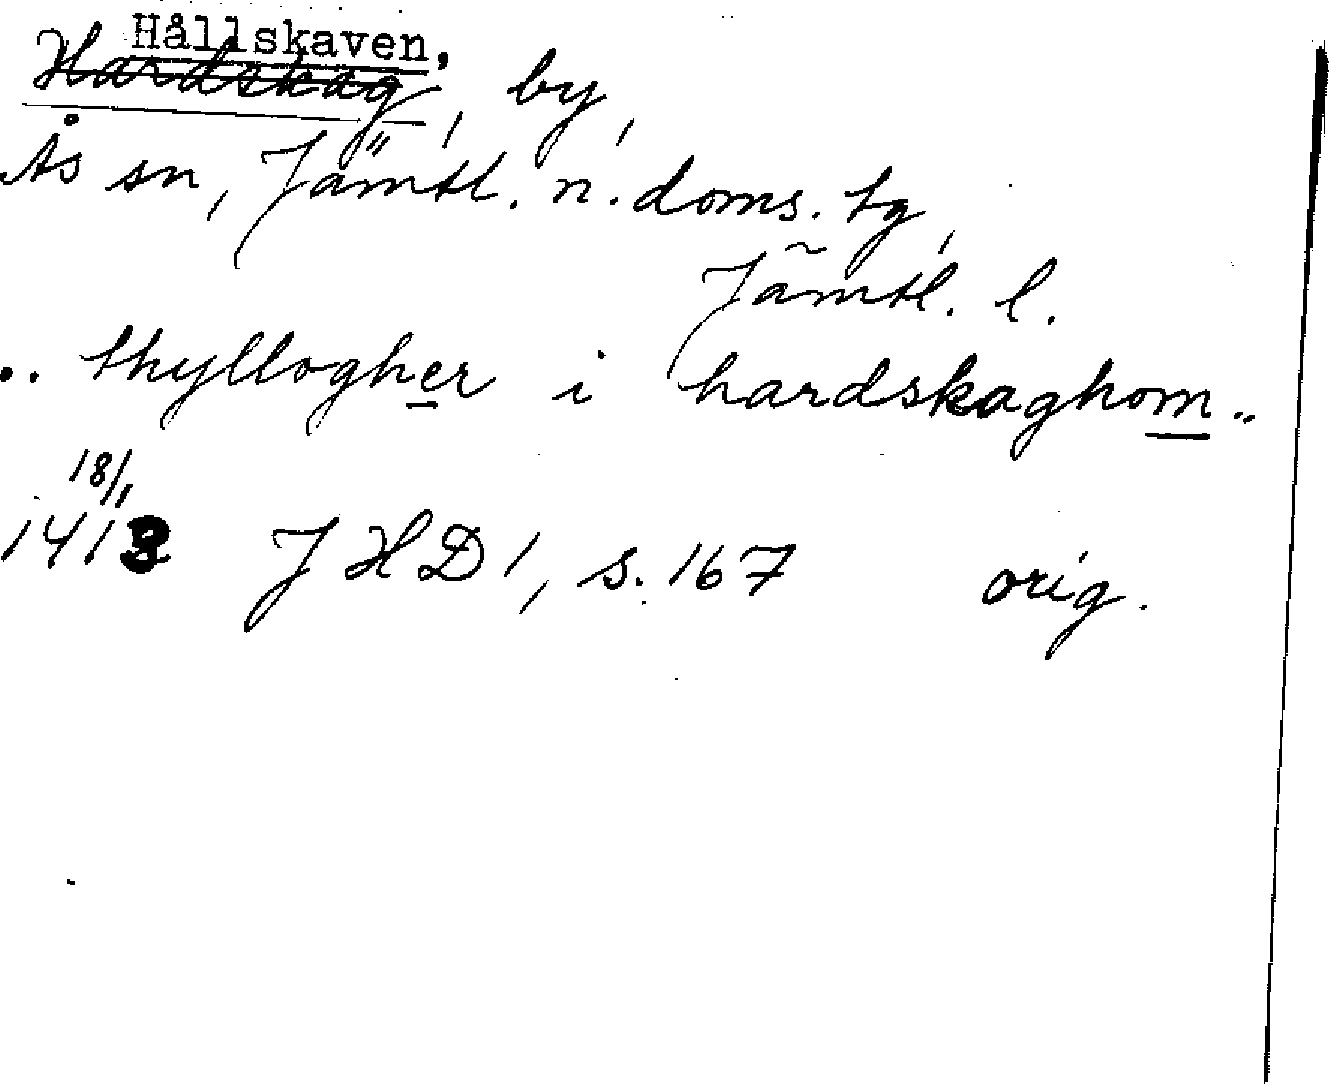 Hållskaven,
Hardskag, by,
Ås sn, Jämtl. n. doms. tg,
Jämtl. l.
.. thyllogher i hardskaghom ..
18/1
1413 JHD 1, s. 167 orig.